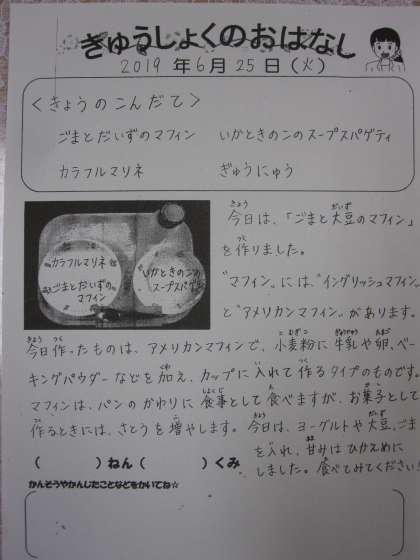 きゅうしょくのおはなし
2019年6月25日(火)
<きょうのこんだて>
ごまとだいずのマフィン いかときのこのスープスパゲティ
カラフルマリネ ぎゅうにゅう
カラフルマリネ
ごまとだいずの
マフィン
いかときのこの
スープスパゲティ
今日は、「ごまと大豆のマフィン」
を作りました。
"マフィン"には、"イングリッシュマフィン"
と"アメリカンマフィン"があります。
今日作ったものは、アメリカンマフィンで、小麦粉に牛乳や卵、ベー
キングパウダーなどを加え、カップに入れて作るタイプのものです。
マフィンは、パンのかわりに食事として食べますが、お菓子として
作るときには、さとうを増やします。今日は、ヨーグルトや大豆、ごま
を入れ、甘みはひかえめに
しました。食べてみてください!
( )ねん( )くみ
かんそうやかんじたことなどをかいてね☆